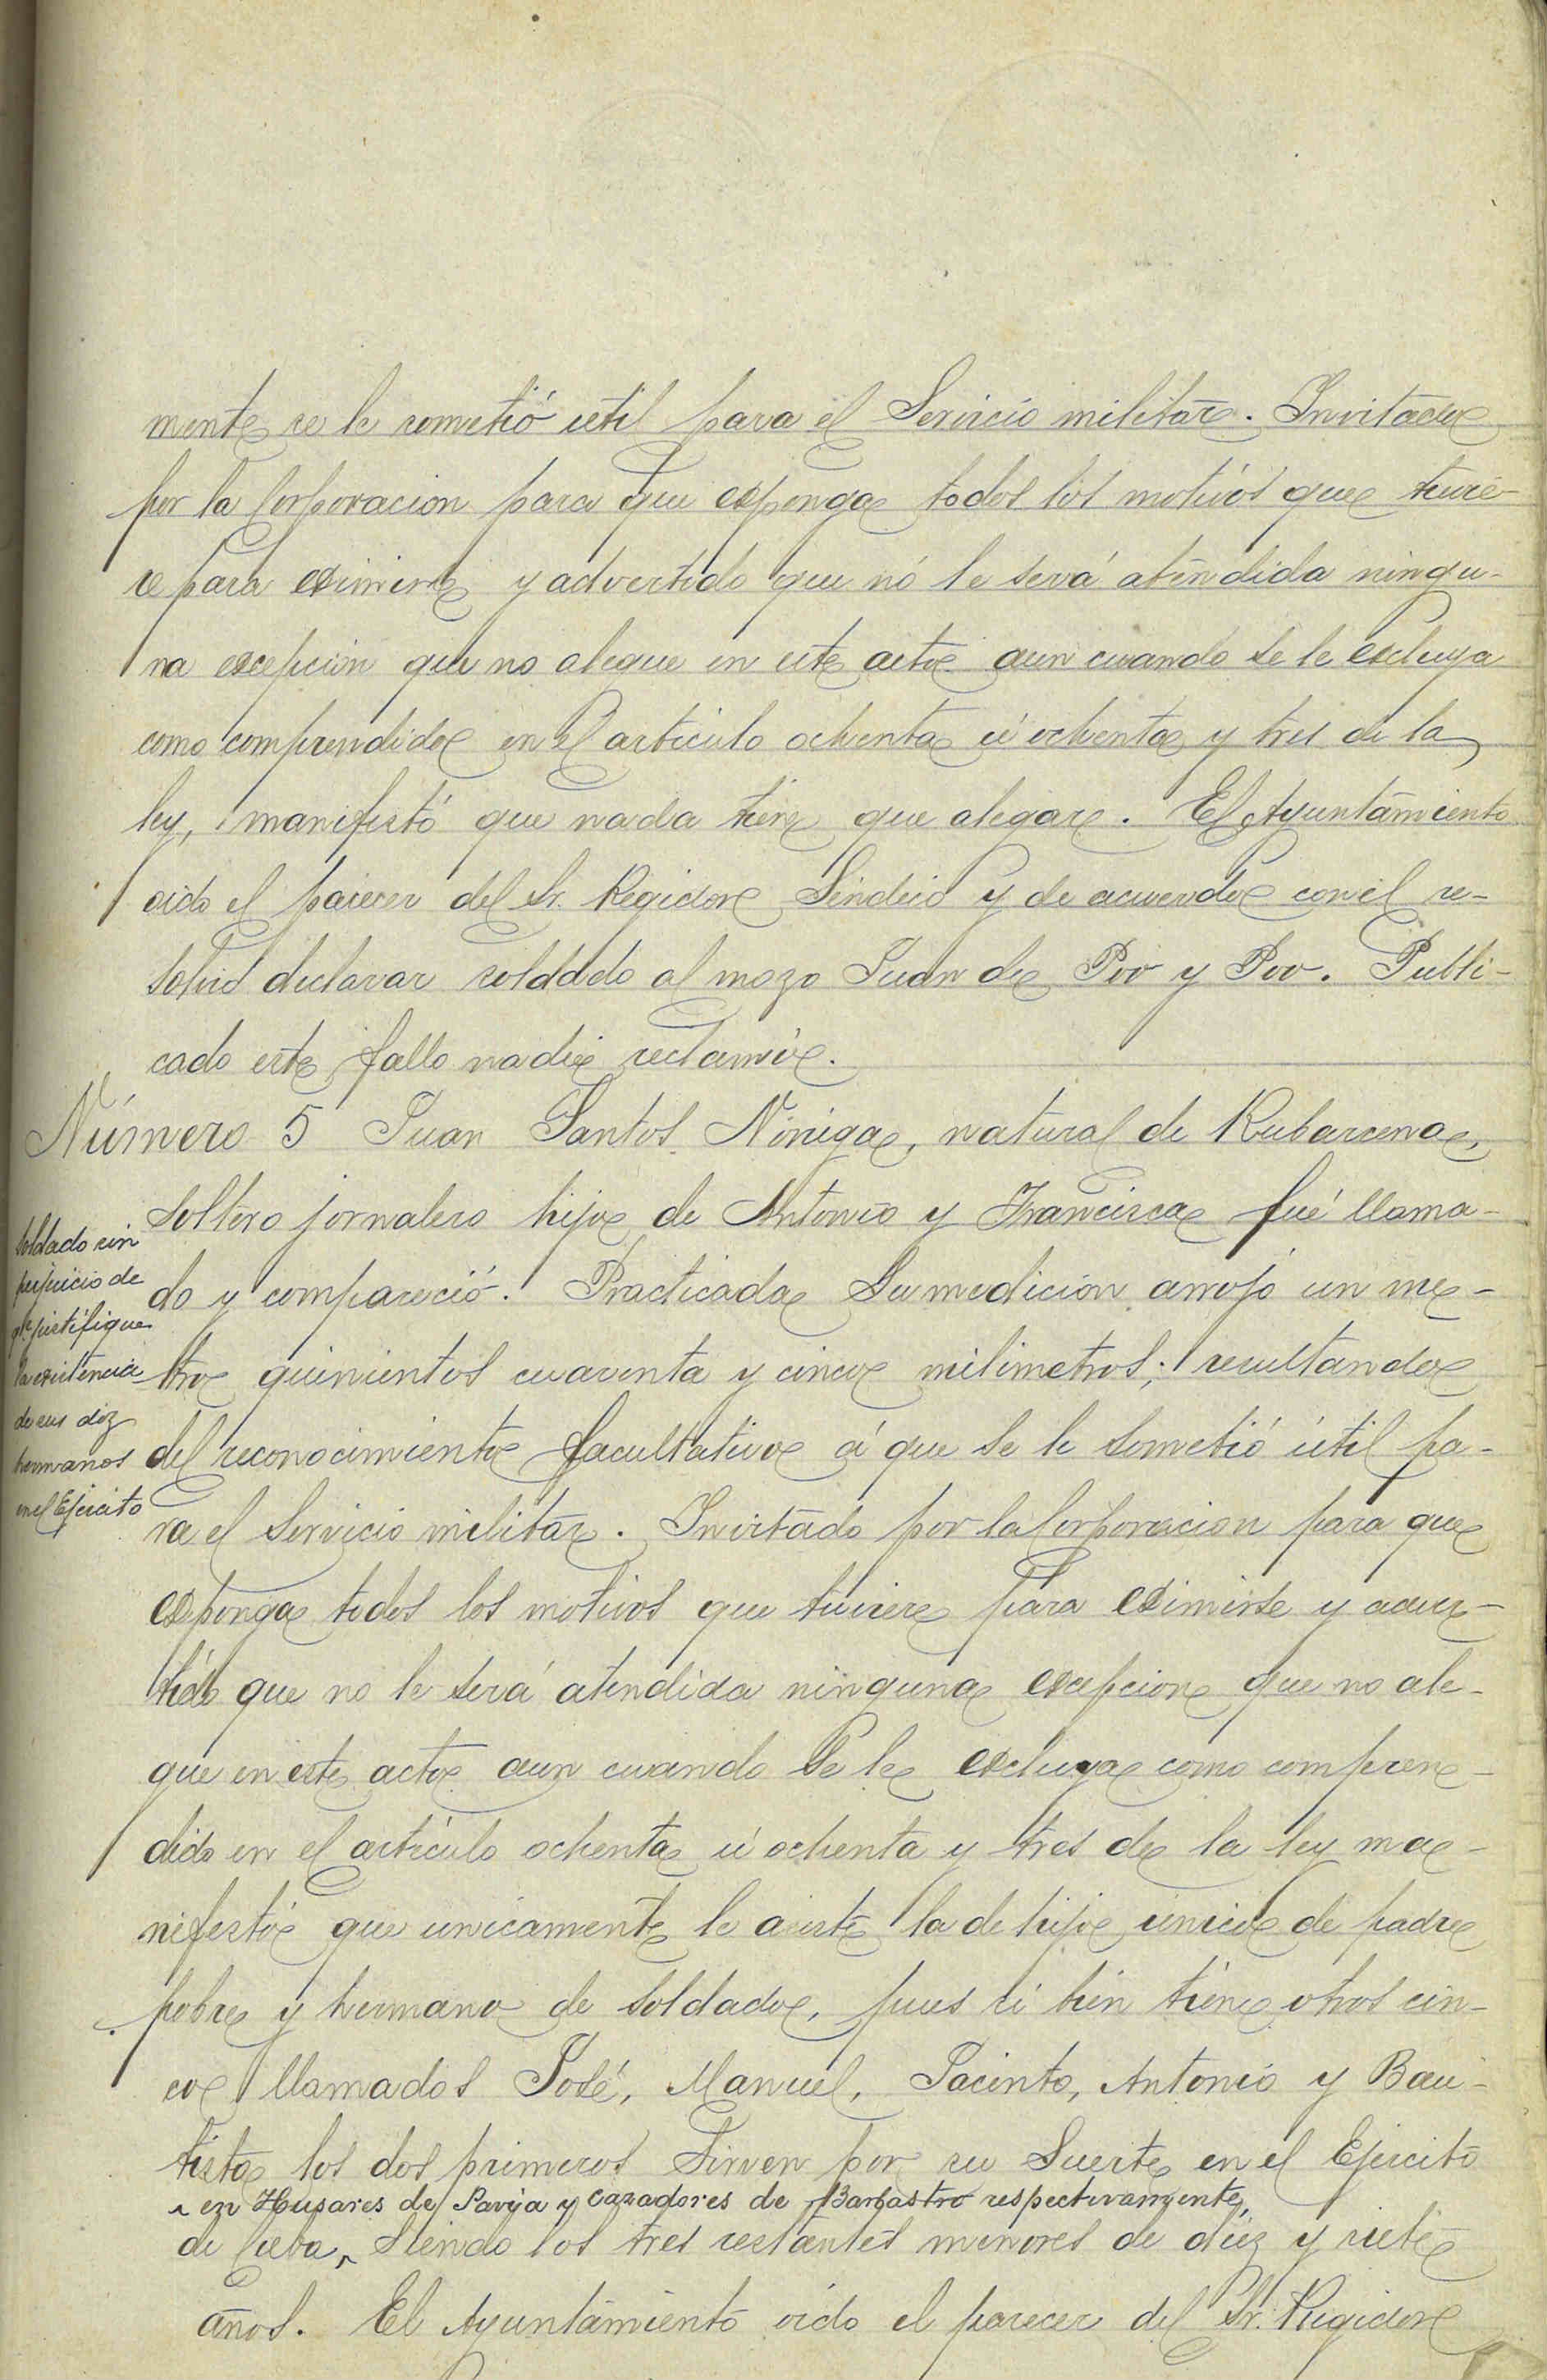 mente se le sometió útil para el Servicio militar. Invitado
por la Corporacion para que esponga todos los motivos que tuvie-
re para eximirse y advertido que nó le será atendida ningu-
na escepción que no alegue en este acto aun cuando se le escluya
como comprendido en el articulo ochenta ú ochenta y tres de la
ley, manifestó que nada tiene que alegar. El Ayuntamiento
oido el parecer del Sr. Regidor Sindico y de acuerdo con él re-
solvió declarar soldado al mozo Juan de Poo y Poo. Publi-
cado este fallo nadie reclamó.
Número 5 Juan Santos Noriega, natural de Rubarcena,
soltero jornalero hijo de Antonio y Francisca fué llama-
do y compareció. Practicada su medición arrojo un me-
tro quinientos cuarenta y cinco milimetros; resultando
del reconocimiento facultativo á que se le sometió útil pa-
ra el Servicio militar. Invitado por la Corporacion para que
esponga todos los motivos que tuviere para eximirse y adver-
tido que no le será atendida ninguna escepcion que no ale-
gue en este acto aun cuando se le escluya como compren-
dido en el artículo ochenta ú ochenta y tres de la ley ma-
nifestó que unicamente le asiste la de hijo único de padre
pobre y hermano de soldado, pues si bien tiene otros cin-
co llamados José, Manuel, Jacinto, Antonio y Bau-
tista los dos primeros sirven por su suerte en el Ejercito
en Husares de Pavia y Cazadores de Barbastro respectivamente,
de Cuba, siendo los tres restantes menores de diez y siete
años. El Ayuntamiento oido el parecer del Sr. Regidor
Soldado sin
perjuicio de
qe. justifique
la existencia
de sus dos
hermanos
en el Ejercito